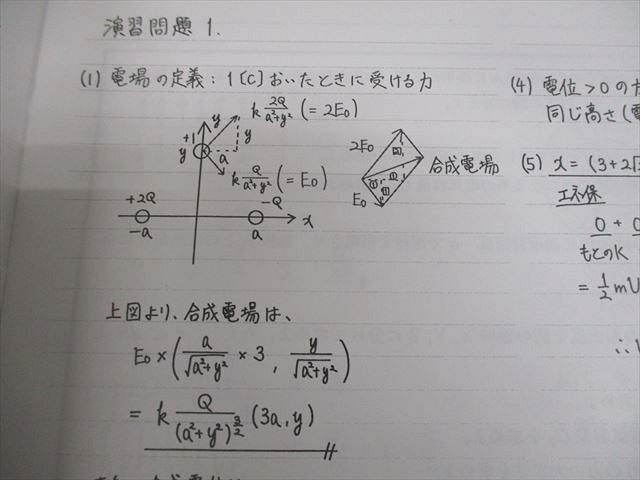 演習問題 1.
(1) 電場の定義: 1[C]おいたときに受ける力
k 2Q/(a²+y²) (= 2E₀)
+1
y
y
y
a
k Q/(a²+y²) (= E₀)
+2Q
-Q
-a
a
x
2E₀
E₀
合成電場
上図より、合成電場は、
E₀ × ( a/√(a²+y²) × 3 , y/√(a²+y²) )
= k Q/(a²+y²)^(3/2) (3a, y)
(4) 電位 > 0 の
同じ高さ(
(5) x = (3+2√
エネ保
0 + 0
もとのK
= 1/2 m
∴